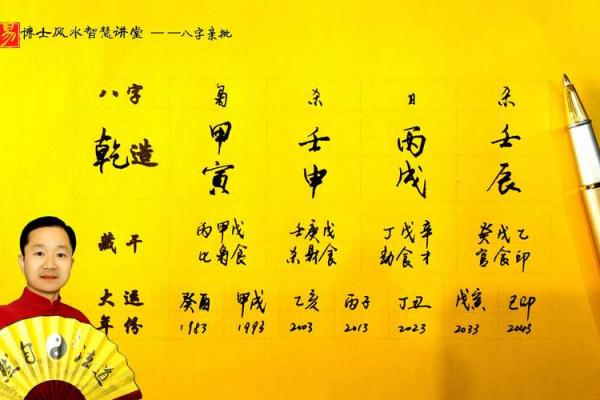 易 博士风水智慧讲堂 ——八字亲批
八字 枭 杀 日 杀
乾造 甲 壬 丙 壬
寅 申 戌 辰
藏干 丙甲戊 壬庚戊 丁戊辛 癸戊乙
比枭食 杀财食 劫食才 官食印
大运 癸酉 甲戌 乙亥 丙子 丁丑 戊寅 己卯
年份 1983 1993 2003 2013 2023 2033 2043
然自法道